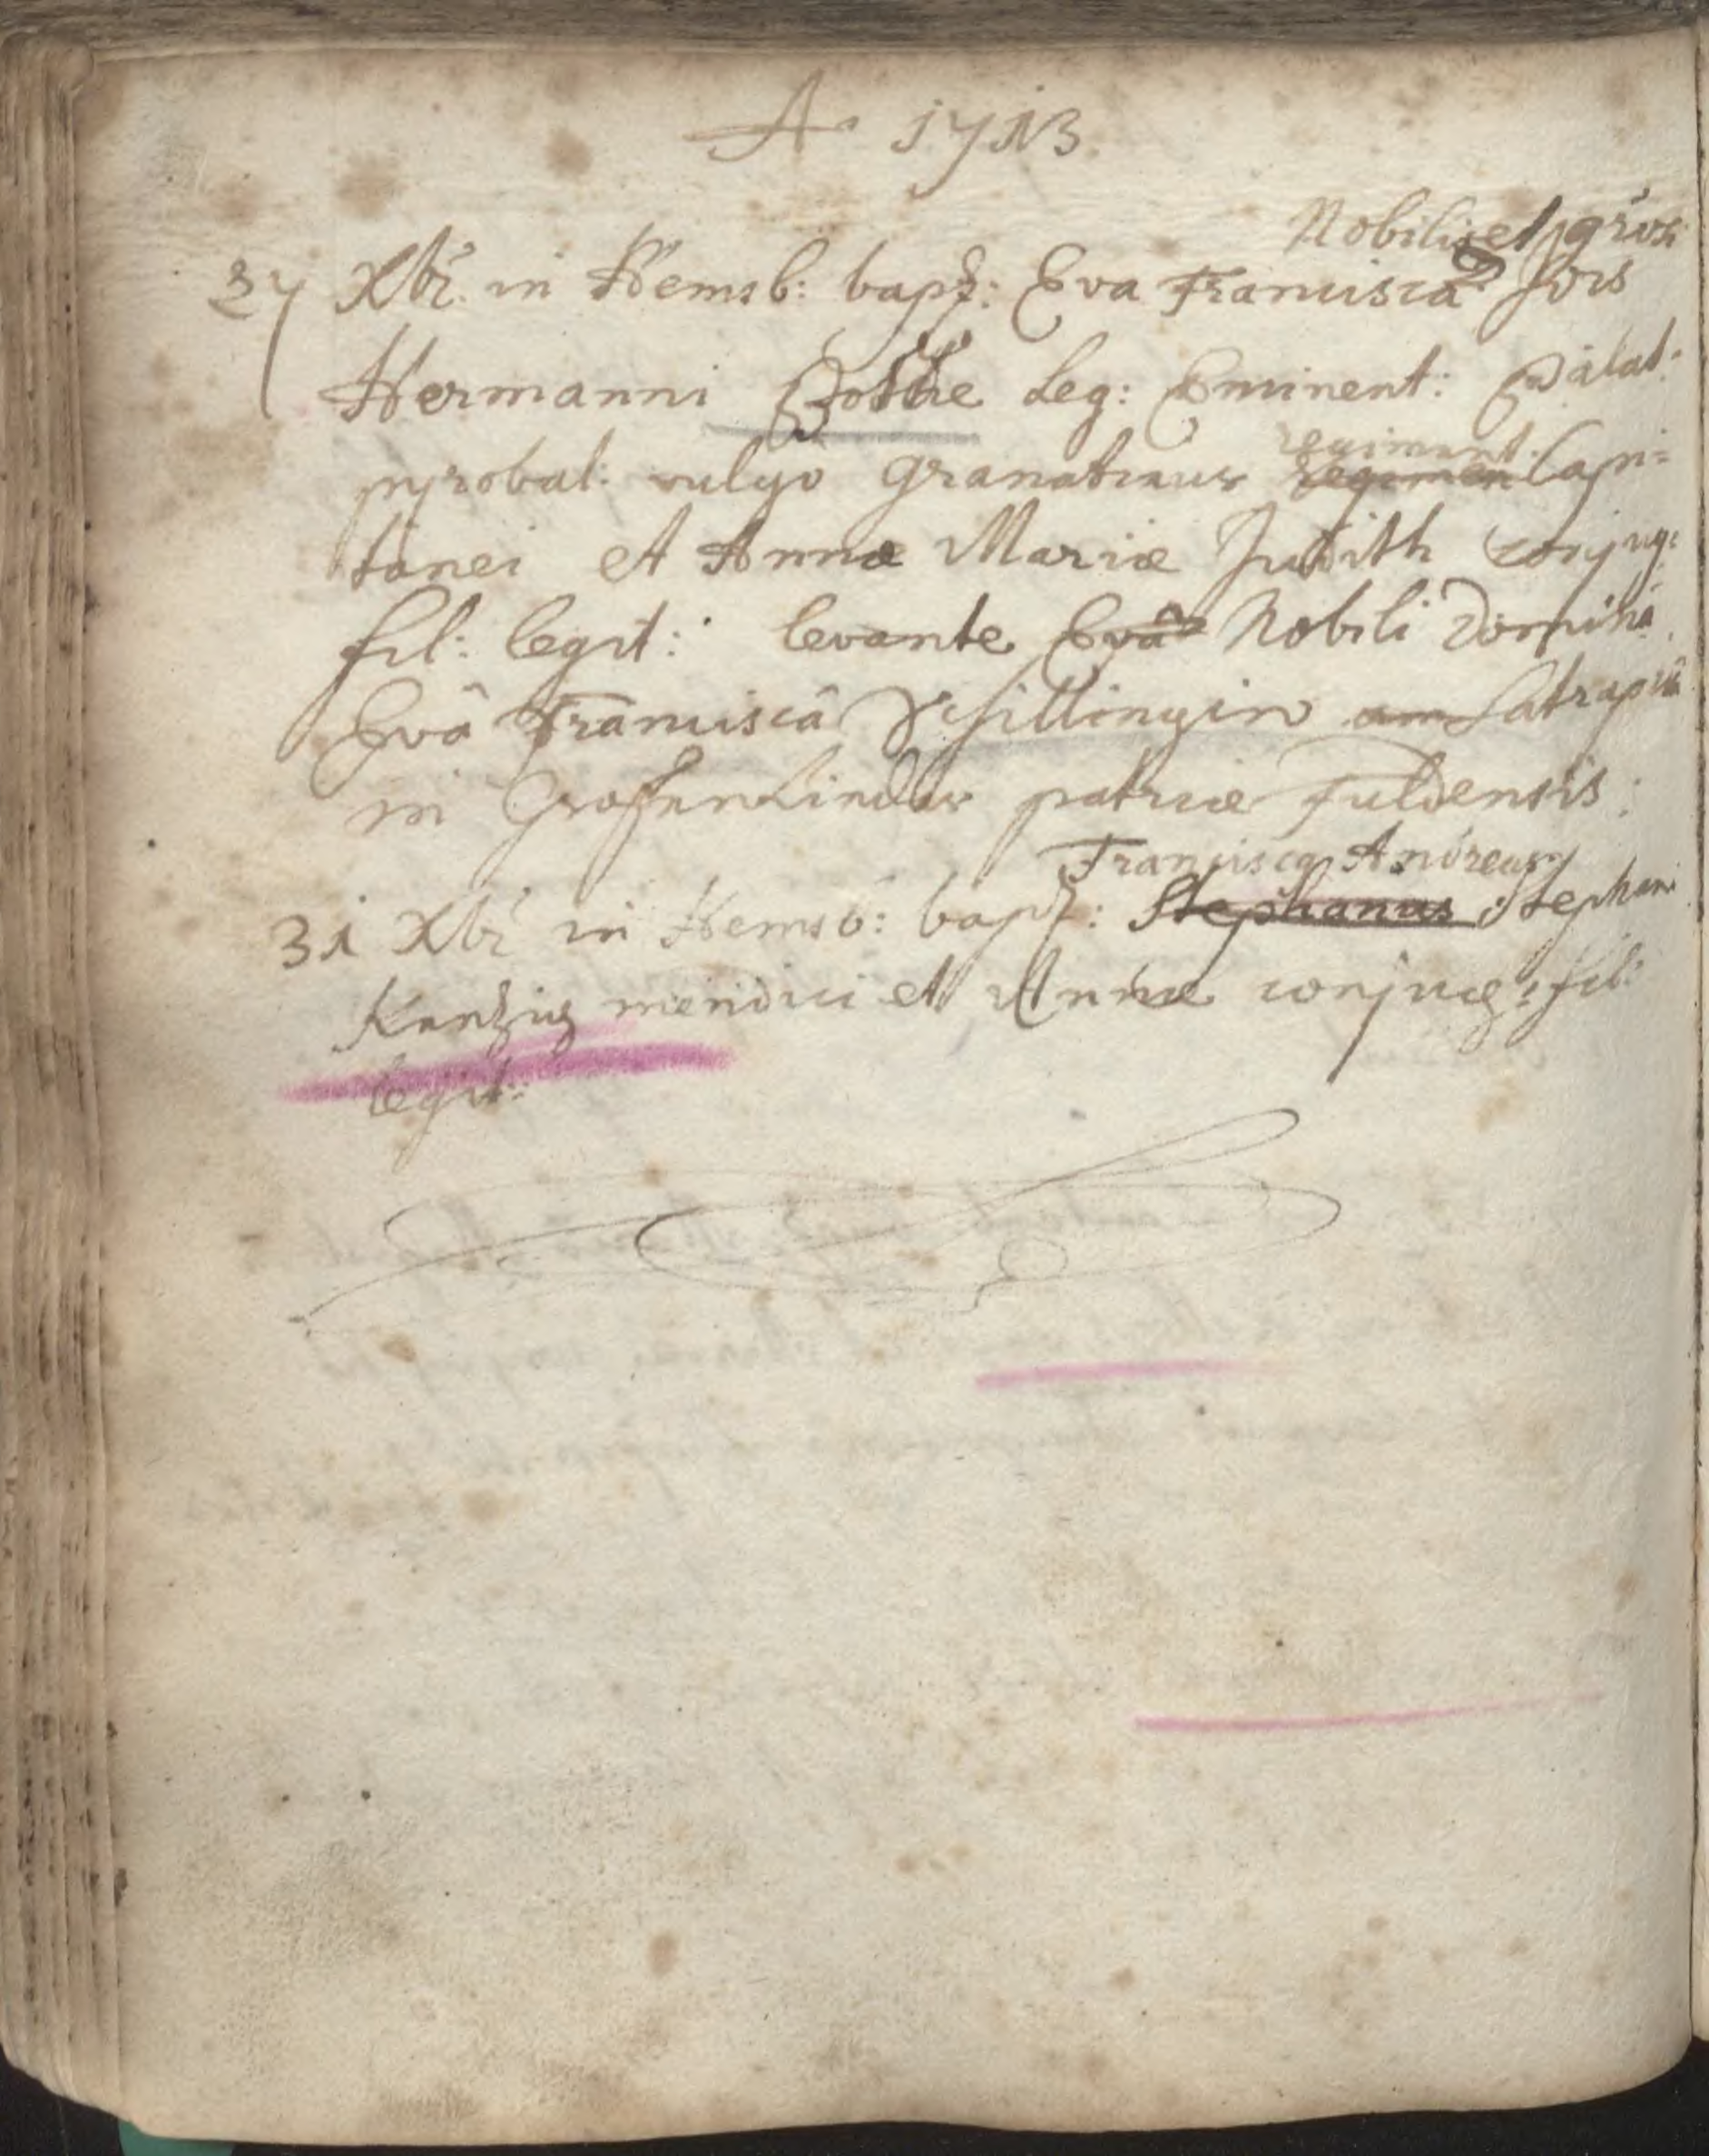 A° 1713
Nobilis et
27 Xbr. in Hemsb: bapt: Eva Francisca
Hermanni Leg: Eminent: Palat:
pyrobal: vulgo granatirer regiment. Capi=
tanei et Annæ Mariæ Judith conjug:
fil: legit: levante Evâ Nobili Dominâ
Evâ Franciscâ Schillingin Satrapin
in Grossenlinder patriæ fuldensis:
Franciscq Andreas
31 Xbr in Hemsb: bapt: Stephanus Stephani
mendici et Annæ conjug: fil:
legit: